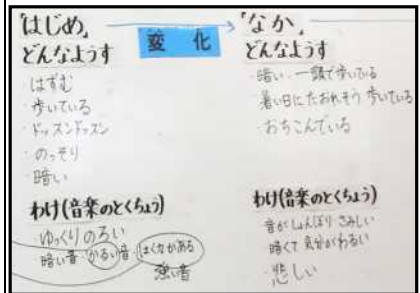 「はじめ」
どんなようす
・はずむ
・歩いている
・ドッスンドッスン
・のっそり
・暗い
わけ(音楽のとくちょう)
・ゆっくり のろい
暗い音・かるい音・はく力がある
強い音
変化
「なか」
どんなようす
・暗い・一頭で歩いている
・暑い日にたおれそう 歩いている
・おちこんでいる
わけ(音楽のとくちょう)
音がしょんぼり さみしい
暗くて 気分がわるい
・悲しい